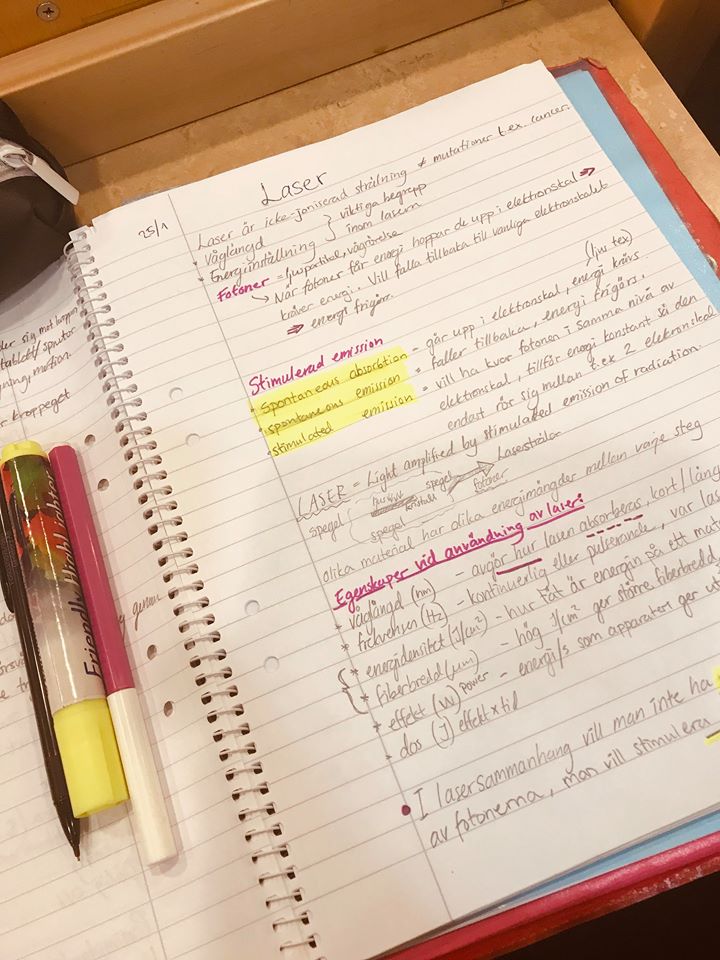 Laser
25/1
Laser är icke-joniserad strålning ≠ mutationer t.ex. cancer.
* Våglängd } viktiga begrepp
* Energiinställning } inom lasern
Fotoner = ljuspartikel, vågrörelse
↳ När fotoner får energi hoppar de upp i elektronskal ⇒
kräver energi. Vill falla tillbaka till vanliga elektronskalet
⇒ energi frigörs.
Stimulerad emission
(ljus tex)
• Spontaneous absorbtion = går upp i elektronskal, energi krävs.
• spontaneous emission = faller tillbaka, energi frigörs.
• stimulated emission = vill ha kvar fotonen i samma nivå av
elektronskal, tillför energi konstant så den
endast rör sig mellan t.ex 2 elektronskal
LASER = Light amplified by stimulated emission of radiation.
spegel ljus kristall spegel Laserstrålar
spegel fotoner
olika material har olika energimängder mellan varje steg
Egenskaper vid användning av laser:
* våglängd (nm) - avgör hur lasen absorberas, kort/lång
* frekvensen (Hz) - kontinuerlig eller pulserande, var
* energidensitet (J/cm²) - hur tät är energin på ett
* fiberbredd (μm) - hög J/cm² ger större fiberbredd
* effekt (W) power - energi/s som apparaten ger
* dos (J) effekt × tid
• I lasersammanhang vill man inte ha
av fotonerna, man vill stimulera
der sig mot kroppen
tablett/sprutor
motion.
kroppeget
genom
Friendly Highlighter